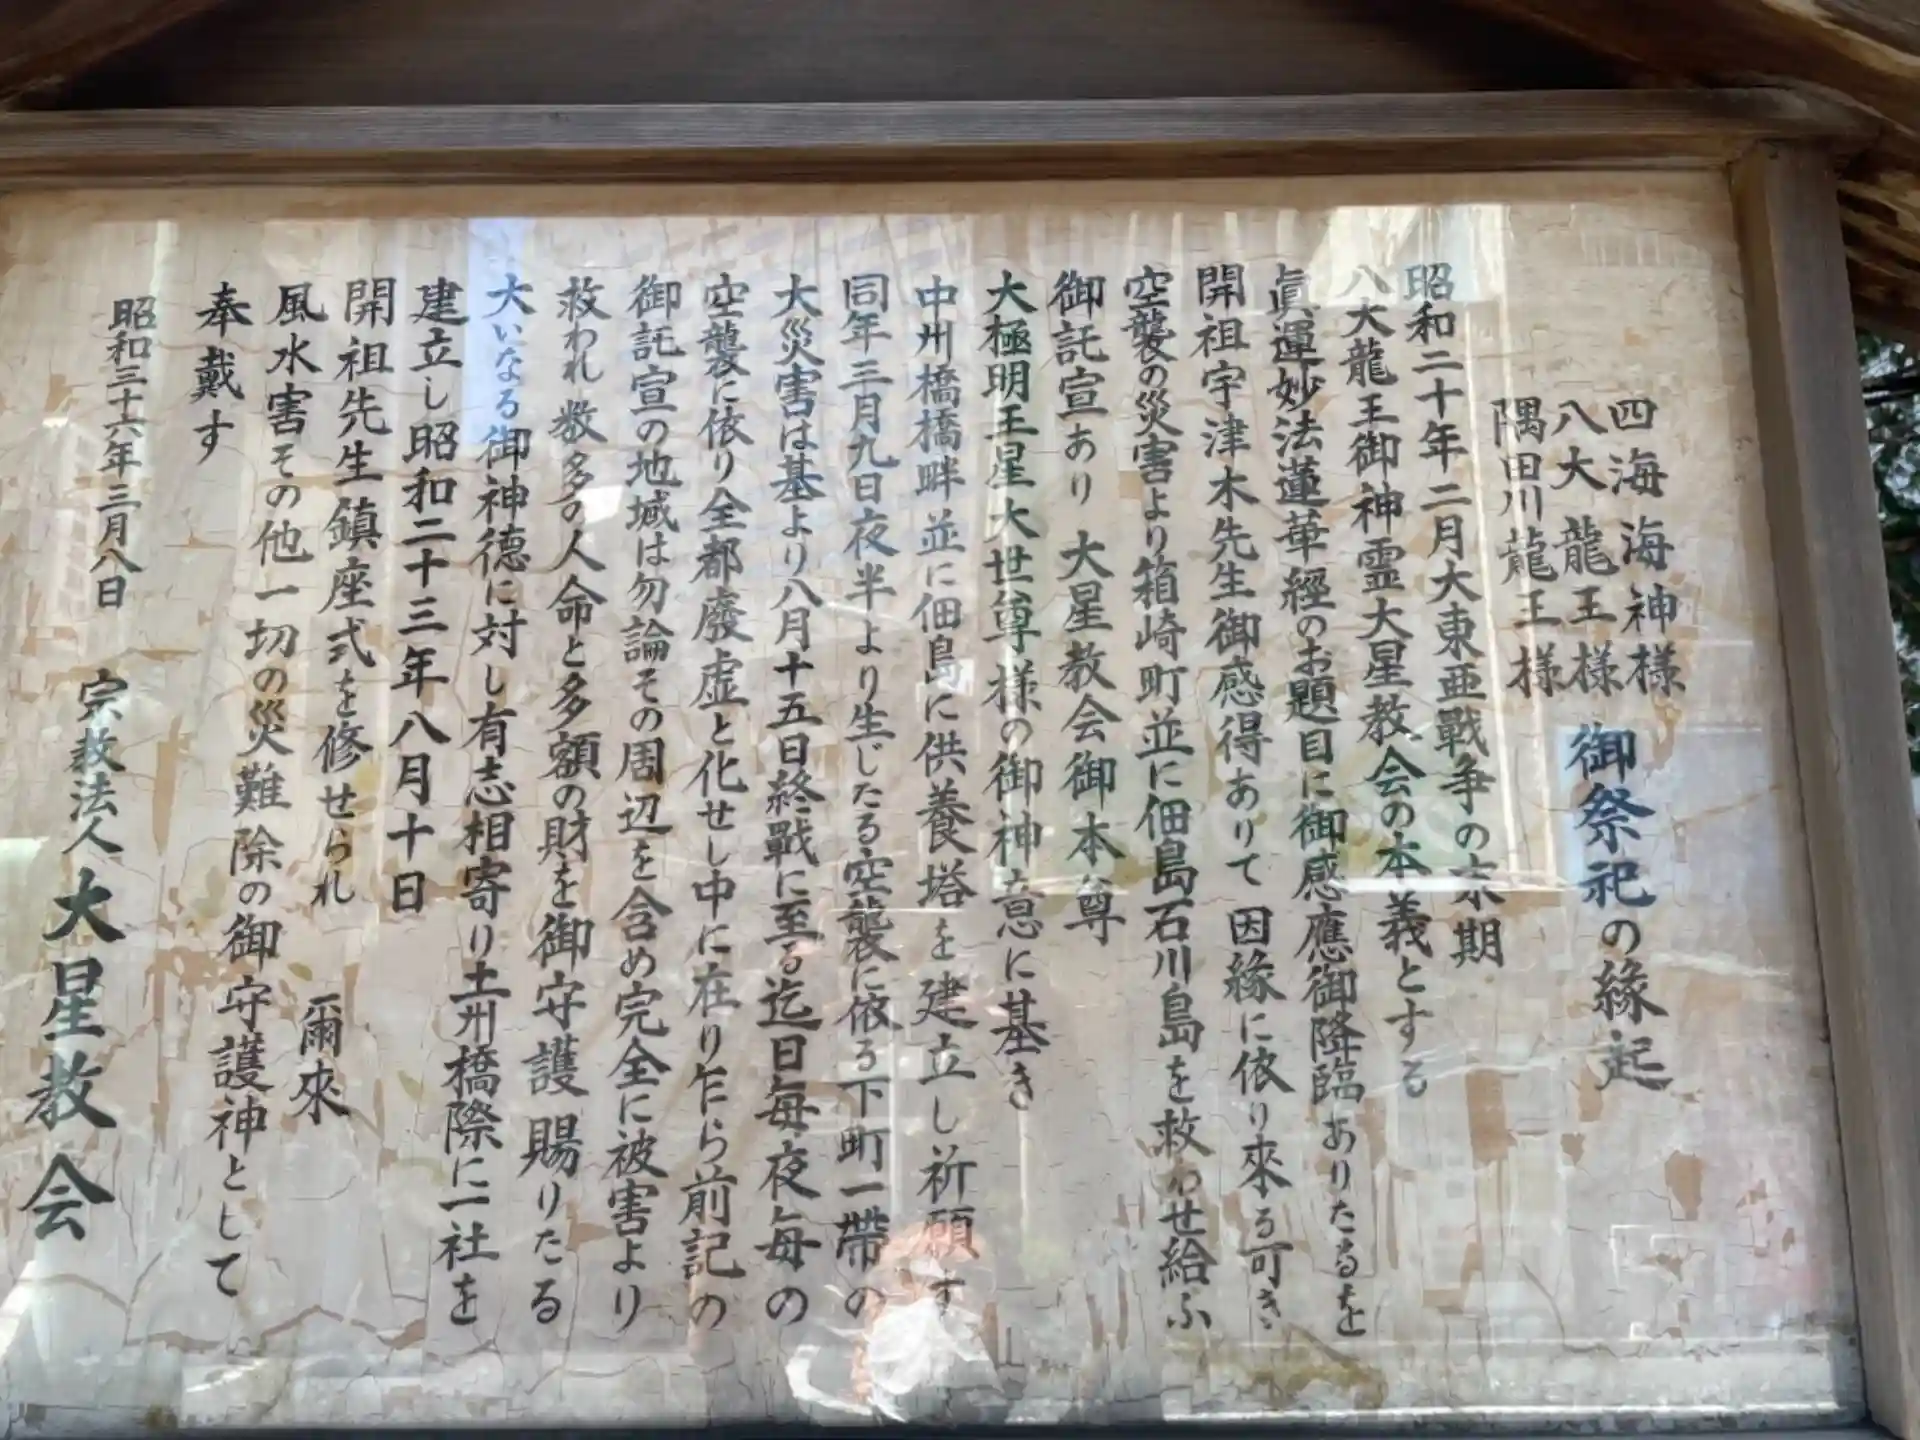 四海海神様
八大龍王様
隅田川龍王様
御祭祀の縁起
昭和二十年二月大東亜戦争の末期
八大龍王御神霊大星教会の本義とする
眞運妙法蓮華經のお題目に御感應御降臨ありたるを
開祖宇津木先生御感得ありて因縁に依り來る可き
空襲の災害より箱崎町並に佃島石川島を救わせ給ふ
御託宣あり 大星教会御本尊
大極明王星大世尊様の御神意に基き
中州橋橋畔並に佃島に供養塔を建立し祈願す
同年三月九日夜半より生じたる空襲に依る下町一帶の
大災害は基より八月十五日終戰に至る迄日毎夜毎の
空襲に依り全都廢虚と化せし中に在り乍ら前記の
御託宣の地域は勿論その周辺を含め完全に被害より
救われ数多の人命と多額の財を御守護賜りたる
大いなる御神德に対し有志相寄り土州橋際に一社を
建立し昭和二十三年八月十日
開祖先生鎮座式を修せられ 爾來
風水害その他一切の災難除の御守護神として
奉戴す
昭和三十六年三月八日
宗教法人 大星教会